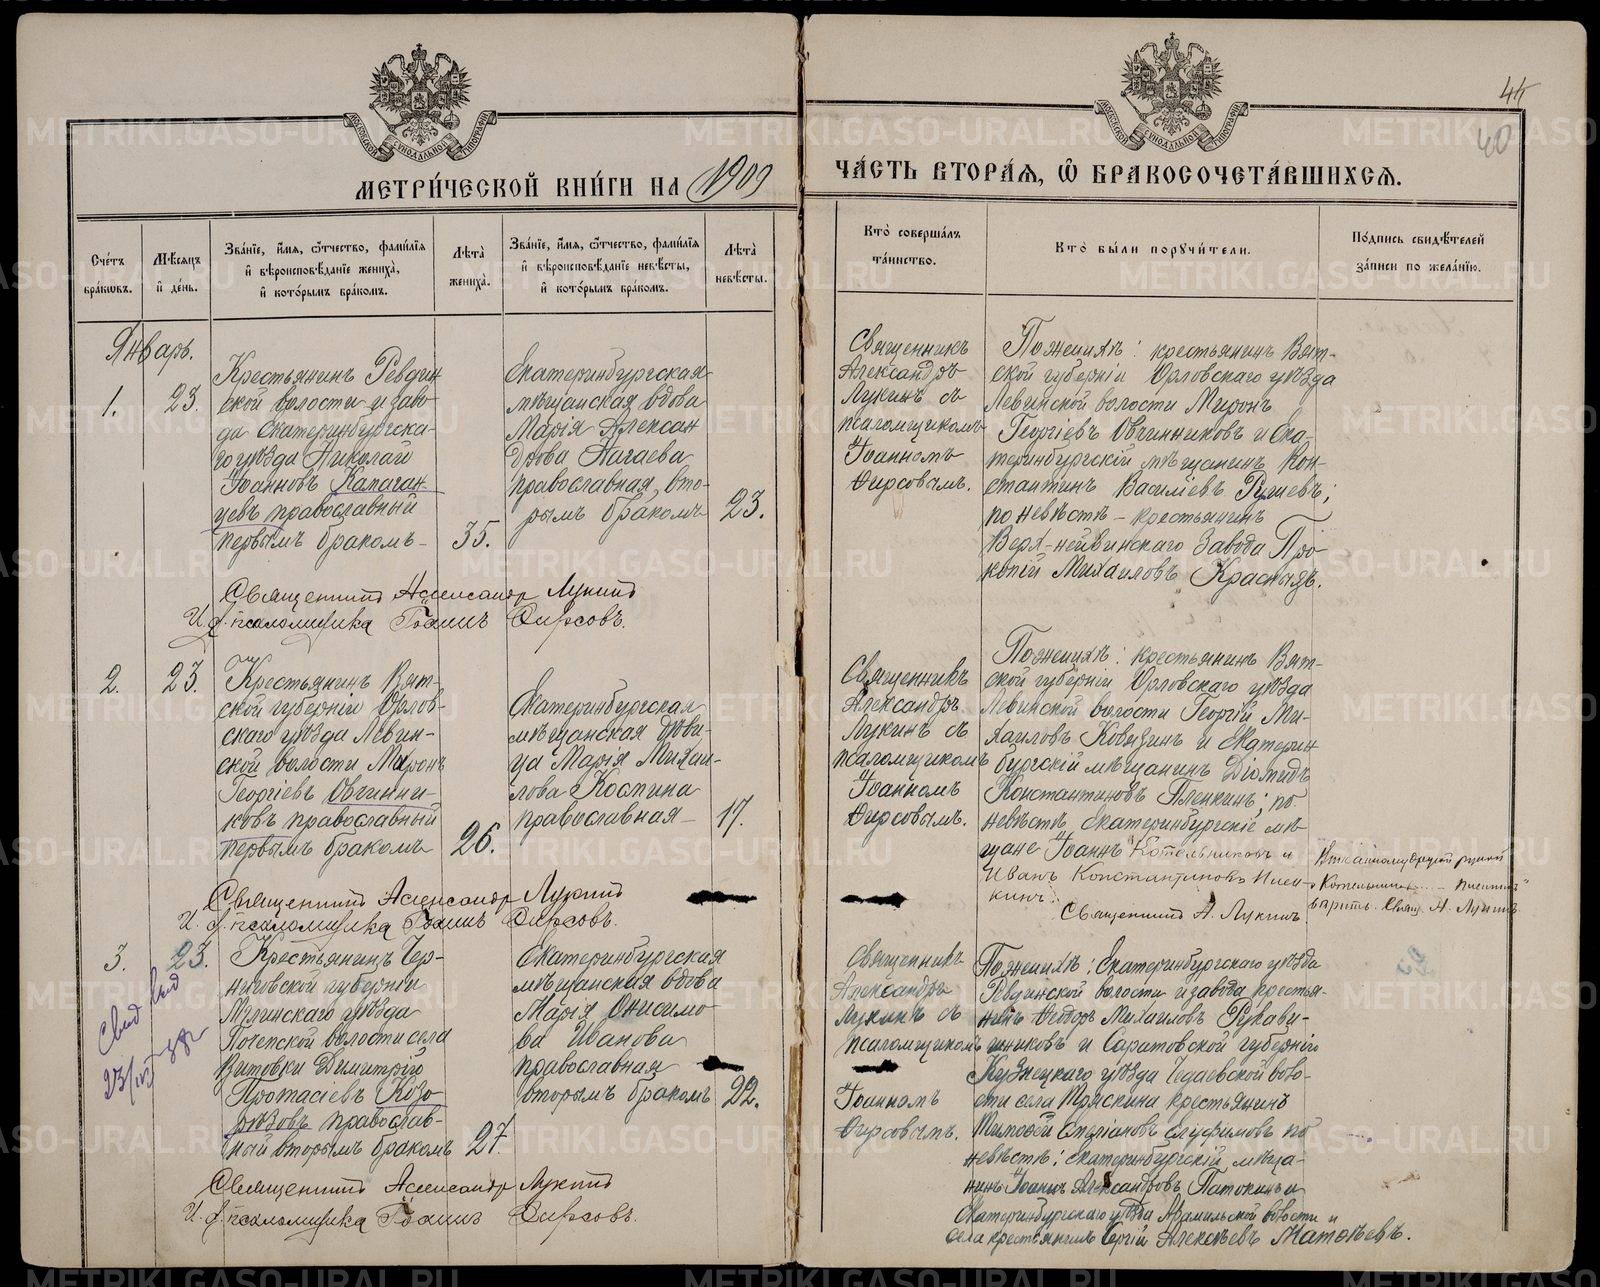 МЕТРИ́ЧЕСКОЙ КНИ́ГИ НА 1909
ЧА́СТЬ ВТОРА́Я, Ѡ҆ БРАКОСОЧЕТА́ВШИХСЯ.
44
40
Сче́тъ бра́кѡвъ.
Мѣ́сяцъ и҆ де́нь.
Зва́нїе, и҆́мя, ѻ҆́тчество, фами́лїя и҆ вѣроисповѣ́данїе жениха̀, и҆ кото́рымъ бра́комъ.
Лѣта̀ жениха̀.
Зва́нїе, и҆́мя, ѻ҆́тчество, фами́лїя и҆ вѣроисповѣ́данїе невѣ́сты, и҆ кото́рымъ бра́комъ.
Лѣта̀ невѣ́сты.
Кто̀ соверша́лъ та́инство.
Кто̀ бы́ли поручи́тели.
По́дпись свидѣ́телей за́писи по жела́нїю.
Январь.
1.
23.
Крестьянинъ Ревдин
ской волости и заво
да Екатеринбургска-
го уѣзда Николай
Іоанновъ
православный
первымъ бракомъ
35.
Екатеринбургская
мѣщанская вдова
Марія Алексан
дрова
православная, вто-
рымъ бракомъ
23.
Священникъ
Александръ
Лукинъ съ
псаломщикомъ
Іоанномъ
Фирсовымъ.
По женихѣ: крестьянинъ Вят-
ской губерніи Орловскаго уѣзда
Левинской волости Миронъ
Георгіевъ Овчинниковъ и Ека-
теринбургскій мѣщанинъ Кон-
стантинъ Василіевъ
по невѣстѣ - крестьянинъ
Верх-нейвинскаго Завода Про
копій Михаиловъ
Священникъ Александр Лукинъ
И. д. псаломщика Іоаннъ Фирсовъ.
2.
23.
Крестьянинъ Вят-
ской губерніи Орлов-
скаго уѣзда Левин-
ской волости Миронъ
Георгіевъ Овчинни-
ковъ православный
первымъ бракомъ
26.
Екатеринбургская
мѣщанская дѣви-
ца Марія Михаи-
лова
православная
17.
Священникъ
Александръ
Лукинъ съ
псаломщикомъ
Іоанномъ
Фирсовымъ.
По женихѣ: крестьянинъ Вят-
ской губерніи Орловскаго уѣзда
Левинской волости Георгій Ми-
хаиловъ и Екатерин
бургскій мѣщанинъ Діомидъ
Константиновъ по
невѣстѣ Екатеринбургскіе мѣ
щане Іоаннъ Котельниковъ и
Иванъ Константиновъ
Священникъ А. Лукинъ
Священникъ Александр Лукинъ
И. д. псаломщика Іоаннъ Фирсовъ.
3.
23.
Крестьянинъ Чер-
ниговской губерніи
Мглинскаго уѣзда
Почепской волости села
Витовки Димитрій
Протасіевъ Козо
рѣзовъ православ-
ный вторымъ бракомъ
27.
Екатеринбургская
мѣщанская вдова
Марія Онисимо-
ва Иванова
православная
вторымъ бракомъ
22.
Священникъ
Александръ
Лукинъ съ
псаломщикомъ
Іоанномъ
Фирсовымъ.
По женихѣ: Екатеринбургскаго уѣзда
Ревдинской волости и завода крестья-
нинъ Феодоръ Михаиловъ Рукави-
шниковъ и Саратовской губерніи
Кузнецкаго уѣзда волo-
сти села крестьянинъ
Тимофей по
невѣстѣ: Екатеринбургскій мѣща-
нинъ Іоаннъ Александровъ и
Екатеринбургскаго уѣзда Арамильской волости и
села крестьянинъ Сергій Алексѣевъ
Священникъ Александр Лукинъ
И. д. псаломщика Іоаннъ Фирсовъ.
METRIKI.GASO-URAL.RU